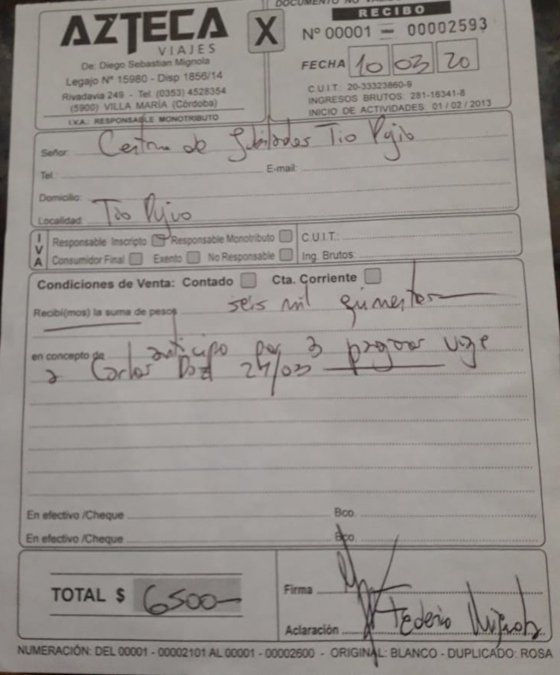 DOCUMENTO NO VALIDO
AZTECA
VIAJES
De: Diego Sebastian Mignola
Legajo Nº 15980 - Disp 1856/14
Rivadavia 249 - Tel. (0353) 4528354
(5900) VILLA MARÍA (Córdoba)
I.V.A.: RESPONSABLE MONOTRIBUTO
X
RECIBO
Nº 00001 - 00002593
FECHA 10 03 20
C.U.I.T: 20-33323860-9
INGRESOS BRUTOS: 281-16341-8
INICIO DE ACTIVIDADES: 01 / 02 / 2013
Señor: Centro de Jubilados Tio Pujio
Tel.: E-mail:
Domicilio:
Localidad: Tio Pujio
IVA
Responsable Inscripto Responsable Monotributo C.U.I.T.:
Consumidor Final Exento No Responsable Ing. Brutos:
Condiciones de Venta: Contado Cta. Corriente
Recibí(mos) la suma de pesos seis mil quinientos
en concepto de anticipo por 3 viaje
a Carlos Paz 24/03
En efectivo /Cheque Bco.
En efectivo /Cheque Bco.
TOTAL $ 6500-
Firma
Aclaración Federico Mignola
NUMERACIÓN: DEL 00001 - 00002101 AL 00001 - 00002600 - ORIGINAL: BLANCO - DUPLICADO: ROSA